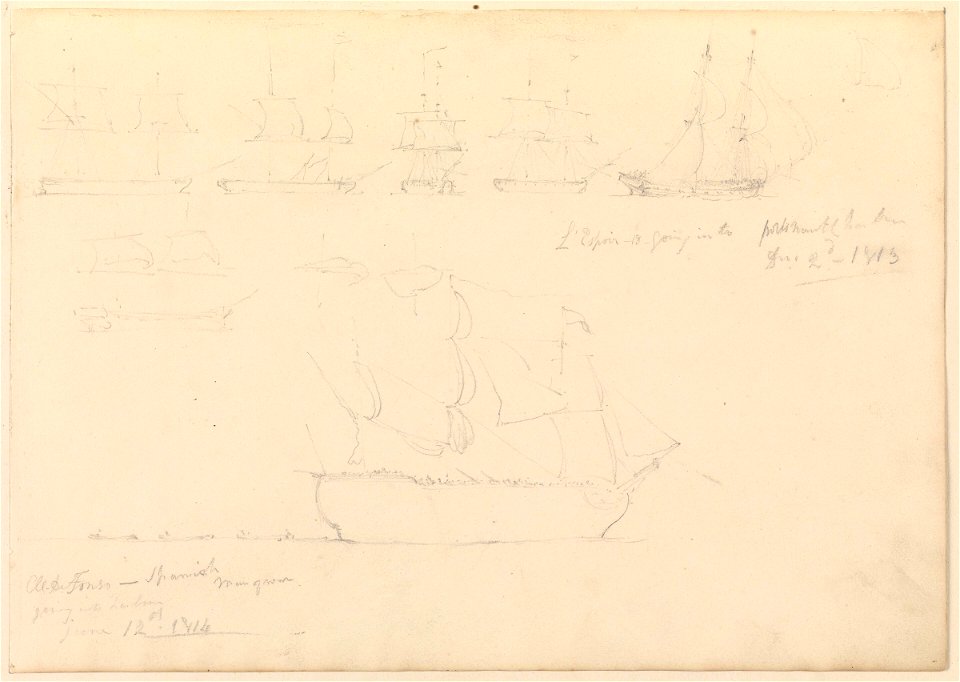 L'Espoir - 18 - going into portsmouth harbour
Dec 2d - 1813
Spanish
man of war.
going into harbour
June 12th 1814